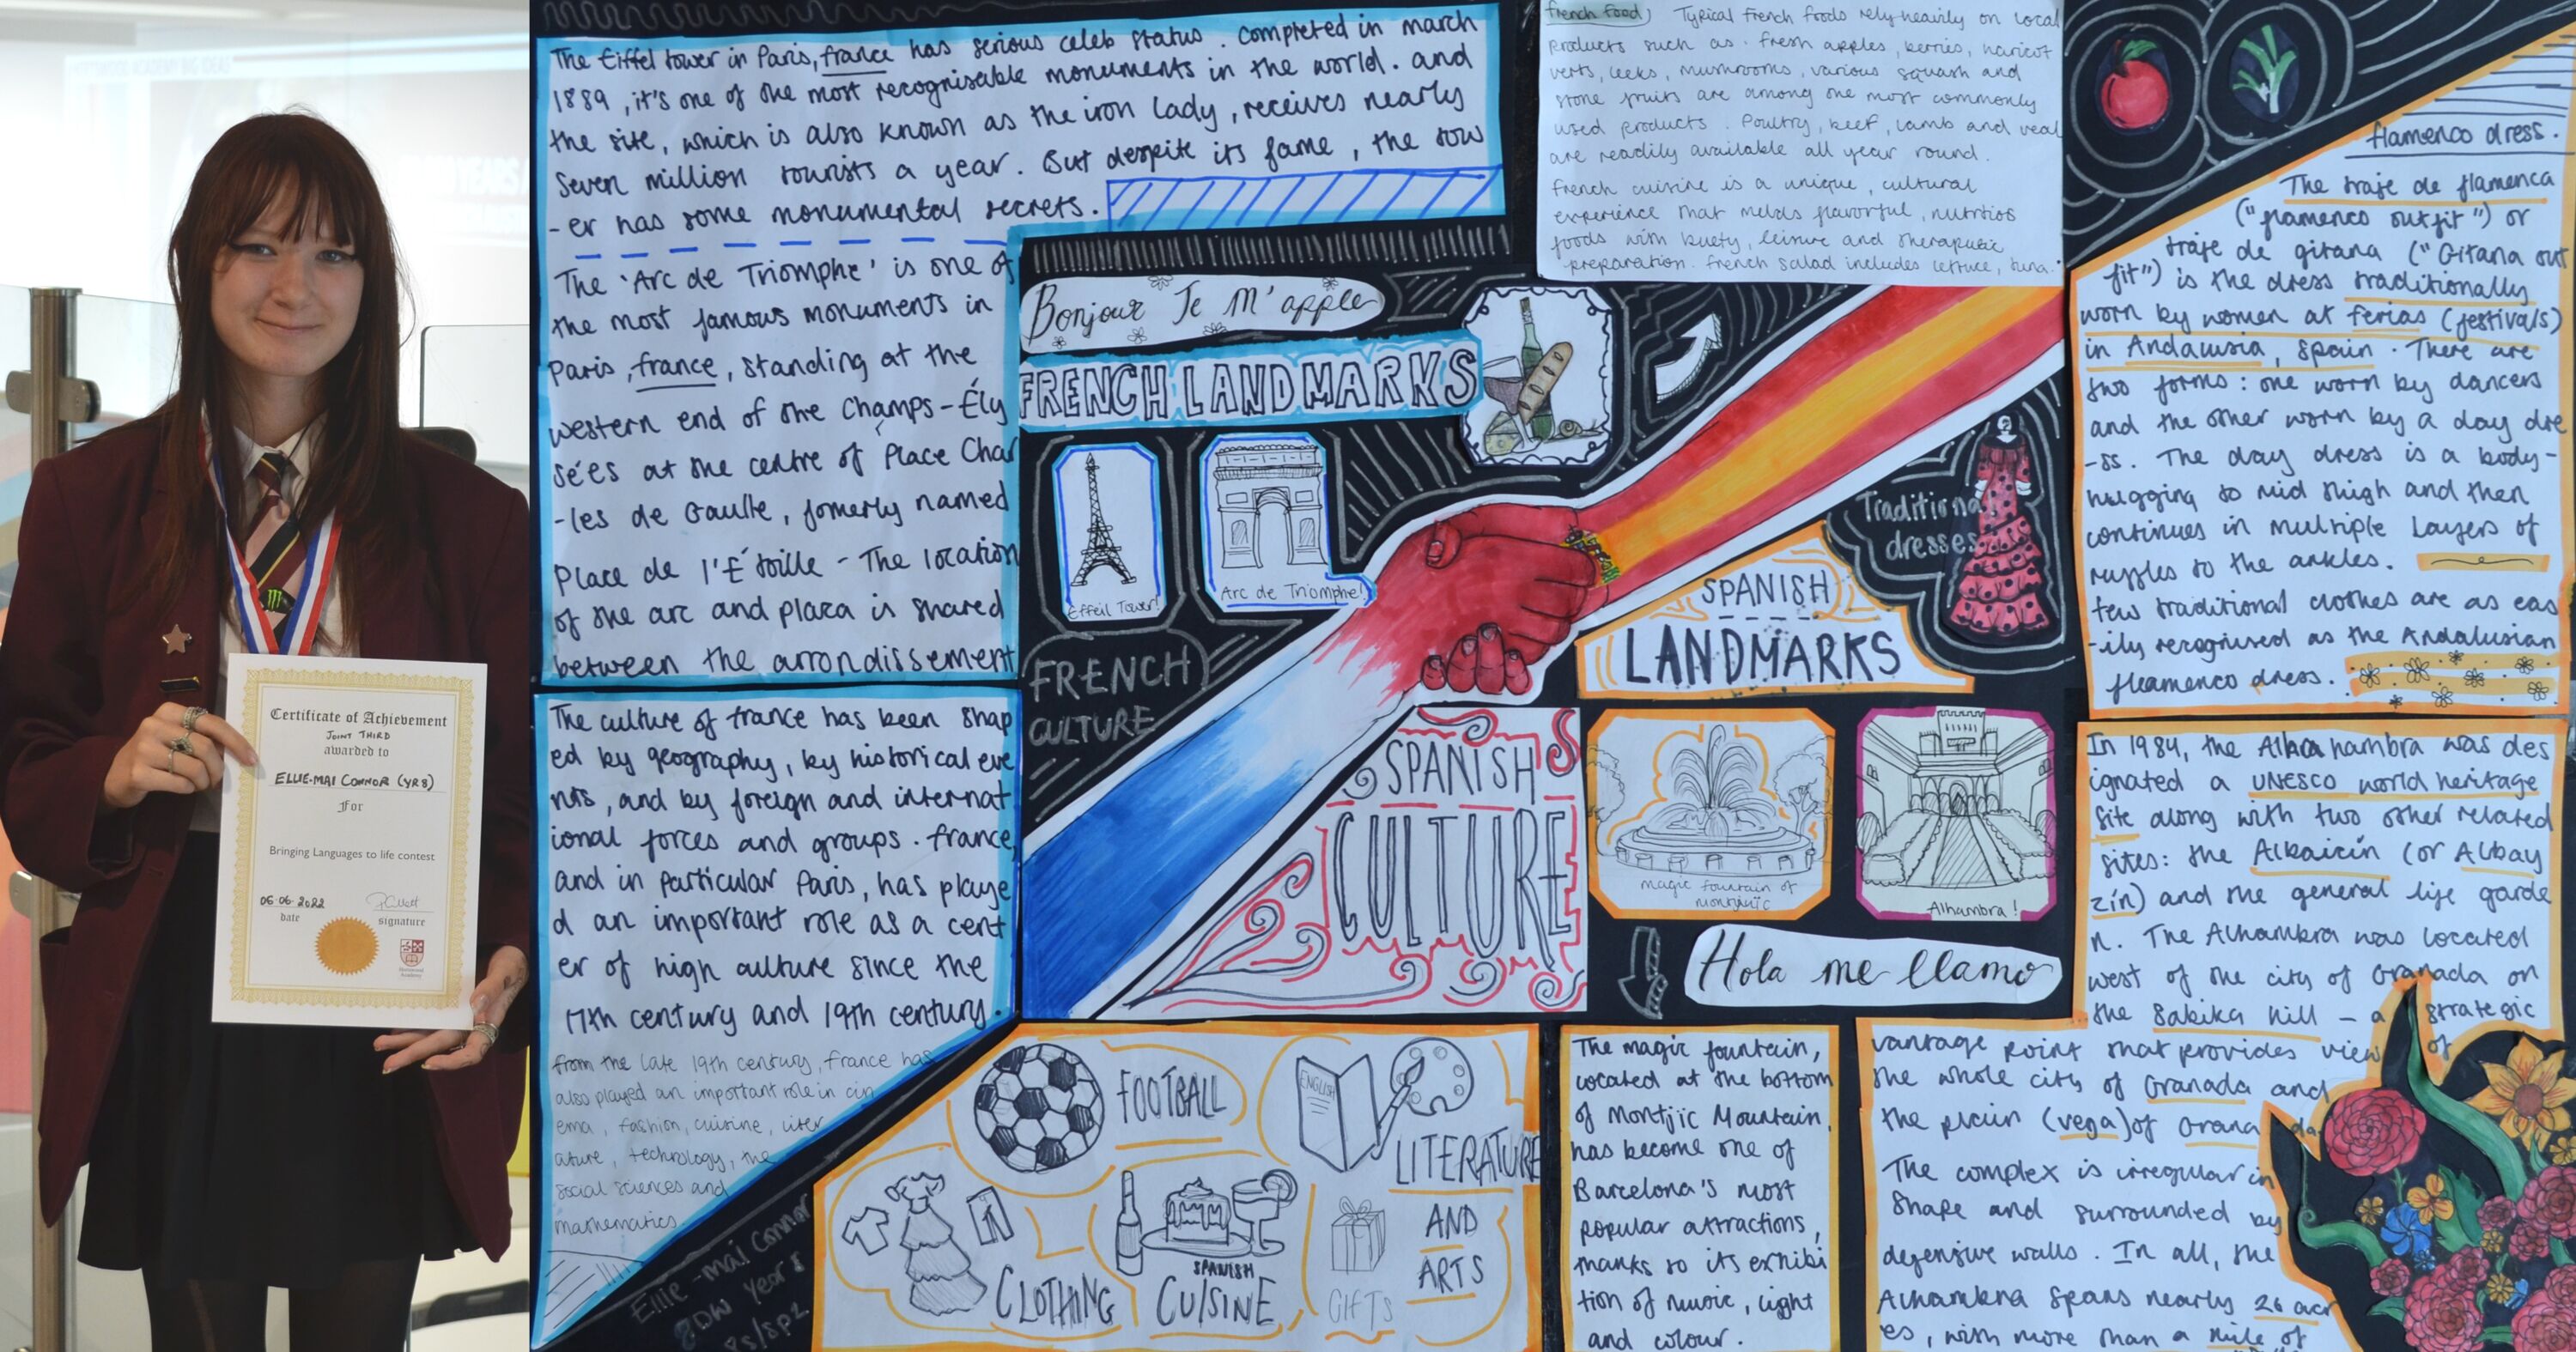 Certificate of Achievement
JOINT THIRD
awarded to
ELLIE-MAI CONNOR (YR8)
For
Bringing Languages to life contest
06.06.2022
date
signature
The Eiffel tower in Paris, france has serious celeb status. Completed in march
1889, it's one of the most recognisable monuments in the world. and
the site, which is also known as the iron lady, receives nearly
seven million tourists a year. But despite its fame, the tow
-er has some monumental secrets.
The 'Arc de Triomphe' is one of
the most famous monuments in
Paris, france, standing at the
western end of the Champs-Ély
sées at the centre of Place Char
-les de Gaulle, fomerly named
Place de l'Étoille - The location
of the arc and plaza is shared
between the arrondissement
The culture of france has been shap
ed by geography, by historical eve
nts, and by foreign and internat
ional forces and groups. france,
and in particular Paris, has playe
d an important role as a cent
er of high culture since the
17th century and 19th century.
from the late 19th century, france has
also played an important role in cin
ema, fashion, cuisine, liter
ature, technology, the
social sciences and
mathematics.
Ellie-mai Connor
8DW Year 8
8s/sp2
Bonjour Je M'apple
FRENCH LANDMARKS
Effeil Tower!
Arc de Triomphe!
FRENCH
CULTURE
french food) Typical french foods rely heavily on local
products such as. fresh apples, berris, haricot
verts, leeks, mushrooms, various squash and
stone fruits are among one most commonly
used products. Poultry, beef, lamb and veal
are readily available all year round.
french cuisine is a unique, cultural
experience that melds flavorful, nutritios
foods with buety, leisure and therapueic
preparation. french salad includes lettuce, tuna.
Traditional
dresses
SPANISH
LANDMARKS
SPANISH
CULTURE
magic fountain of
montjuïc
Alhambra!
Hola me llamo
FOOTBALL
ENGLISH
LITERATURE
AND
ARTS
CLOTHING
SPANISH
CUISINE
GIFTS
The magic fountain,
located at the bottom
of Montjïc Mountain,
has become one of
Barcelona's most
popular attractions,
thanks to its exhibi
tion of music, light
and colour.
flamenco dress.
The traje de flamenca
("flamenco outfit") or
traje de gitana ("Gitana out
fit") is the dress traditionally
worn by women at ferias (festivals)
in Andalusia, Spain. There are
two forms: one worn by dancers
and the other worn by a day dre
-ss. The day dress is a body-
hugging to mid thigh and then
continues in multiple layers of
ruffles to the ankles.
few traditional clothes are as eas
-ily recognised as the Andalusian
fleamenco dress.
In 1984, the Alhambra was des
ignated a UNESCO world heritage
site along with two other related
sites: the Albaicín (or Albay
zín) and the general life garde
n. The Alhambra was located
west of the city of Granada on
the Sabika hill - a strategic
vantage point that provides view of
the whole city of Granada and
the plain (vega) of Grana da
The complex is irregular in
shape and surrounded by
defensive walls. In all, the
Alhambra spans nearly 26 acr
es, with more than a mile of